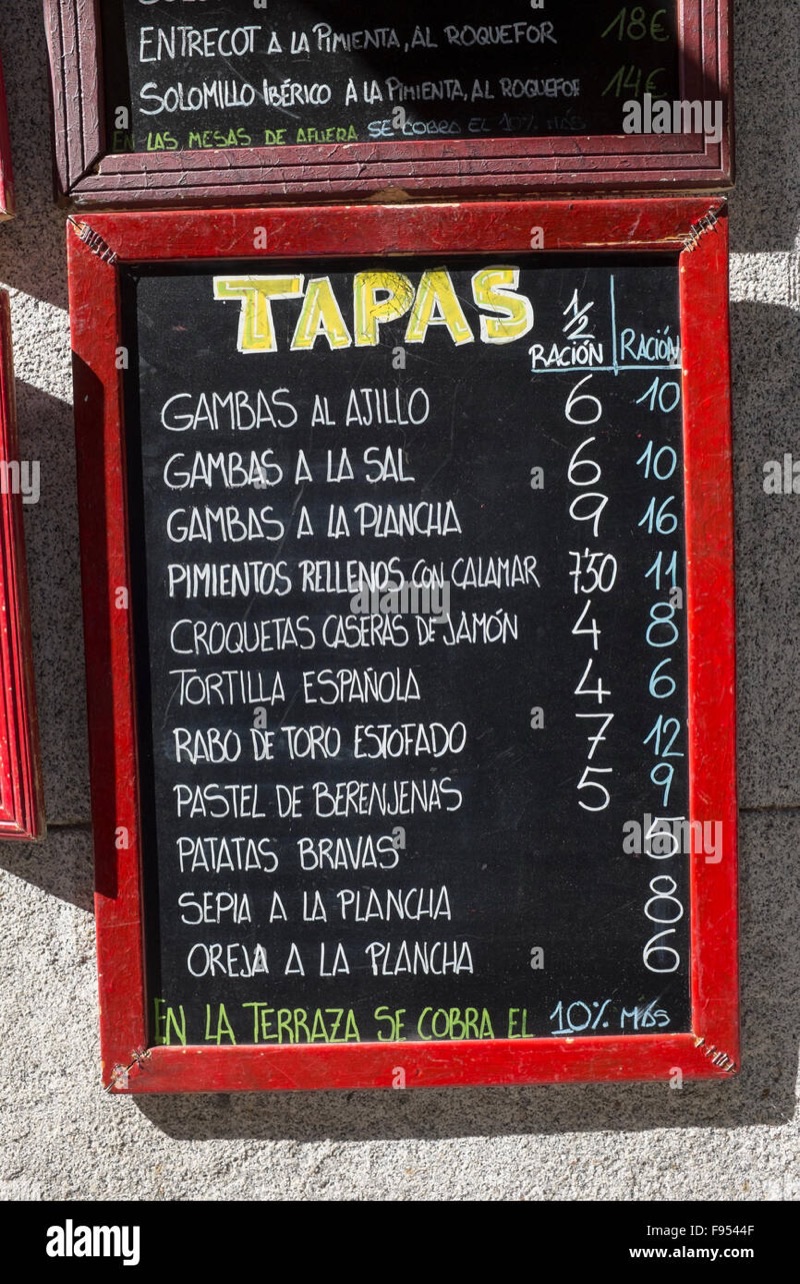 ENTRECOT A LA PIMIENTA, AL ROQUEFOR 18€
SOLOMILLO IBÉRICO A LA PIMIENTA, AL ROQUEFOR 14€
EN LAS MESAS DE AFUERA SE COBRA EL 10% MÁS
TAPAS 1/2 RACIÓN RACIÓN
GAMBAS AL AJILLO 6 10
GAMBAS A LA SAL 6 10
GAMBAS A LA PLANCHA 9 16
PIMIENTOS RELLENOS CON CALAMAR 7'50 11
CROQUETAS CASERAS DE JAMÓN 4 8
TORTILLA ESPAÑOLA 4 6
RABO DE TORO ESTOFADO 7 12
PASTEL DE BERENJENAS 5 9
PATATAS BRAVAS 5
SEPIA A LA PLANCHA 8
OREJA A LA PLANCHA 6
EN LA TERRAZA SE COBRA EL 10% MÁS
alamy stock photo
F9544F
www.alamy.com